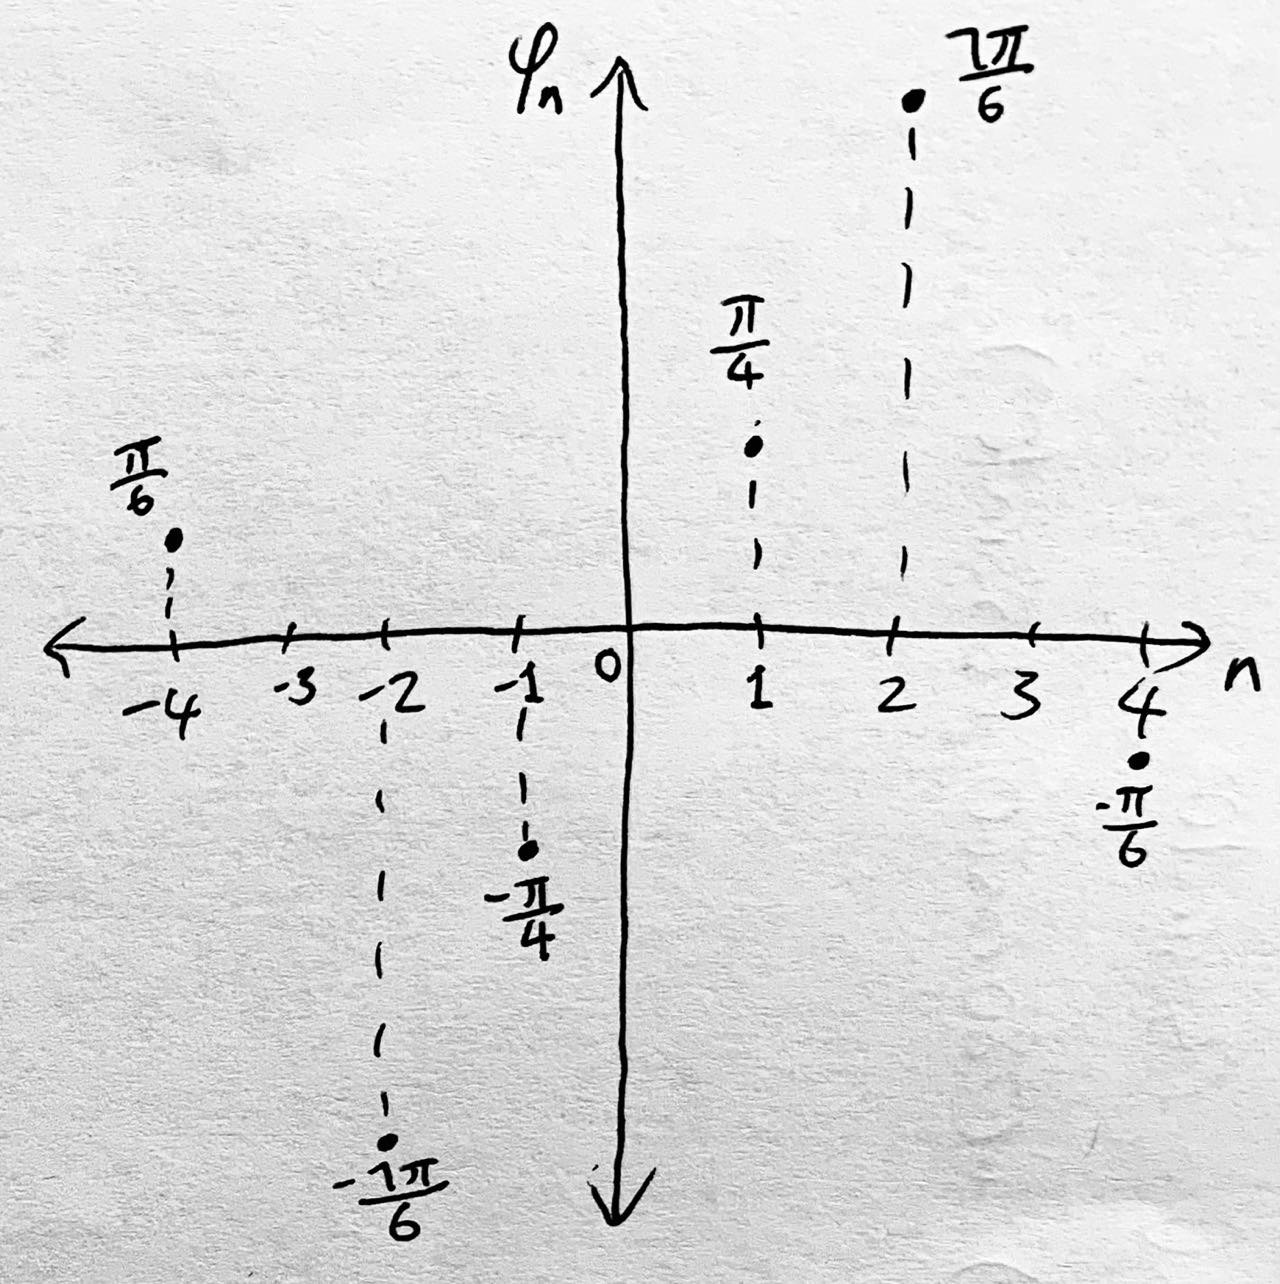 φn
7π/6
π/4
π/6
-4 -3 -2 -1 0 1 2 3 4 n
-π/6
-π/4
-7π/6